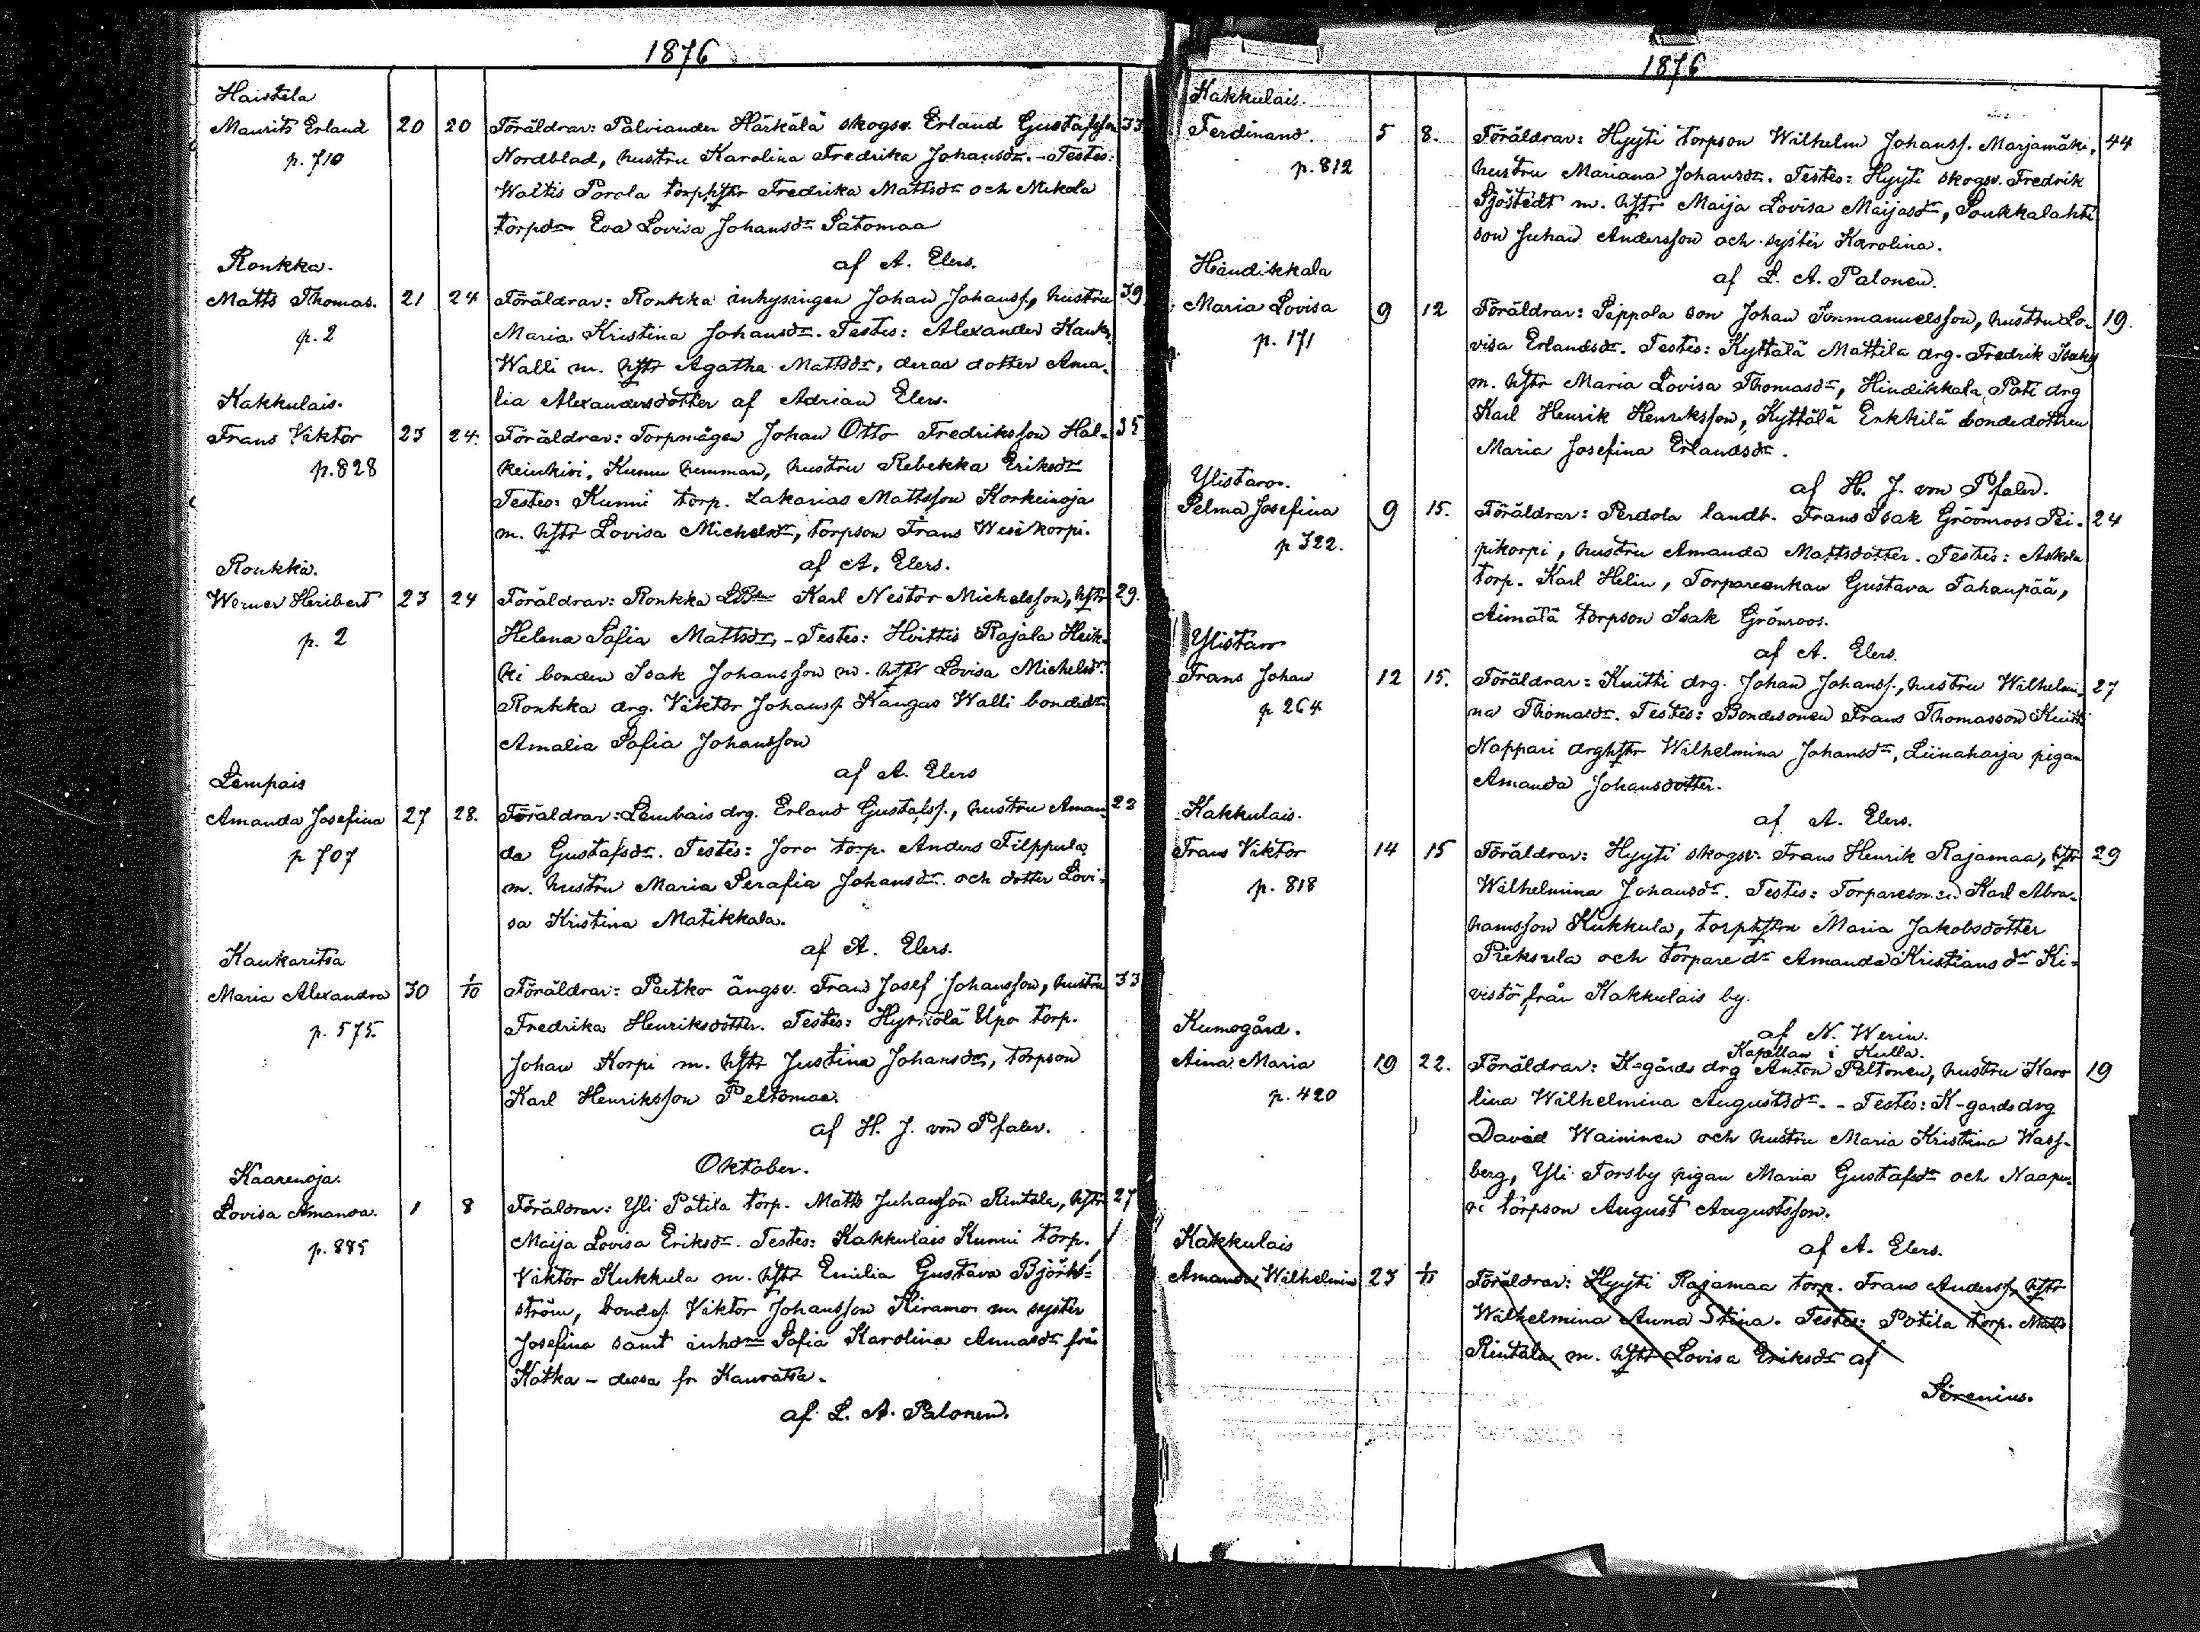 1876
Haistela
Maurits Erland 20 20 Föräldrar: Palviander Härkälä skogsv. Erland Gustafsson 33
p. 710 Nordblad, hustru Karolina Fredrika Johansdr. - Testes:
Waltis Porola torphstr Fredrika Mattsdr och Mikola
torpdn Eva Lovisa Johansdr Satomaa
af A. Elers.
Ronkka.
Matts Thomas. 21 24 Föräldrar: Ronkka inhysingen Johan Johanss., hustru 39
p. 2 Maria Kristina Johansdr. Testes: Alexander
Walli m. hstr Agatha Mattsdr, deras dotter Ama-
lia Alexandersdotter af Adrian Elers.
Kakkulais.
Frans Viktor 23 24. Föräldrar: Torpmågen Johan Otto Fredriksson Hal- 35
p. 828 keinkivi, Kunnu hemman, hustru Rebekka Eriksdr
Testes: Kunni torp. Zakarias Mattsson Korkeinoja
m. hstr Lovisa Michelsdr, torpson Frans Wesikorpi.
af A. Elers.
Ronkka.
Werner Heribert 23 24 Föräldrar: Ronkka Karl Nestor Michelsson, hstr 29.
p. 2 Helena Sofia Mattsdr, - Testes: Hvittis Rajala Heik-
ki bonden Isak Johansson m. hstr Lovisa Michelsdr.
Ronkka drg. Viktor Johanss. Kangas Walli bondedr
Amalia Sofia Johansson
af A. Elers
Lempais
Amanda Josefina 27 28. Föräldrar: Lembais drg. Erland Gustafss., hustru Aman- 23
p 707 da Gustafsdr. Testes: Joro torp. Anders Filppula
m. hustru Maria Serafia Johansdr. och dotter Lovi-
sa Kristina Matikkala.
af A. Elers.
Kaukaritsa
Maria Alexandra 30 1/10 Föräldrar: Paitko ängsv. Frans Josef Johansson, hustru 33
p. 575. Fredrika Henriksdotter. Testes: Hyrkölä Upo torp.
Johan Korpi m. hstr Justina Johansdr, torpson
Karl Henriksson Peltomaa.
af H. J. von Pfaler.
Oktober.
Kaarenoja.
Lovisa Amanda. 1 8 Föräldrar: Yli Potila torp. Matts Juhansson Rintala, hstr 27
p. 885 Maija Lovisa Eriksdr. Testes: Kakkulais Kunni torp.
Viktor Kukkula m. hstr Emilia Gustava Björk-
ström, bondes. Viktor Johansson Kiramo m syster
Josefina samt inhdn Sofia Karolina Annasdr från
Kotka - dessa fr Kauratsa.
af L. A. Palonen.
1876
Kakkulais.
Ferdinand. 5 8. Föräldrar: Hyyti torpson Wilhelm Johanss. Marjamäki, 44
p. 812 hustru Mariana Johansdr. Testes: Hyyti skogsv. Fredrik
Sjöstedt m. hstr Maija Lovisa Maijasdr, Soukkalahti
son Juhan Andersson och syster Karolina.
af L. A. Palonen.
Händikkala
Maria Lovisa 9 12 Föräldrar: Seppola son Johan Immanuelsson, hustru Lo- 19.
p. 171 visa Erlandsdr. Testes: Kyttälä Mattila drg. Fredrik
m. hstr Maria Lovisa Thomasdr, Hindikkala Pati drg
Karl Henrik Henriksson, Kyttälä Erkkilä bondedottren
Maria Josefina Erlandsdr.
af H. J. von Pfaler.
Ylistaro.
Selma Josefina 9 15. Föräldrar: Perdola landt. Frans Isak Gröönroos Pii- 24
p 322. pikorpi, hustru Amanda Mattsdotter. Testes: Askola
torp. Karl Helin, Torpareenkan Gustava Tahanpää,
Aimälä torpson Isak Grönroos.
af A. Elers.
Ylistaro
Frans Johan 12 15. Föräldrar: Knitti drg. Johan Johanss., hustru Wilhelmi- 27
p 264 na Thomasdr. Testes: Bondesonen Frans Thomasson Knitti
Nappari drghstr Wilhelmina Johansdr, Liinaharja pigan
Amanda Johansdotter.
af A. Elers.
Kakkulais.
Frans Viktor 14 15 Föräldrar: Hyyti skogsv. Frans Henrik Rajamaa, hstr 29
p. 818 Wilhelmina Johansdr. Testes: Torparesonen Karl Abra-
hamsson Kukkula, torphstru Maria Jakobsdotter
Prekoula och torpare dr Amanda Kristians dr Ki-
vistö från Kakkulais by.
af N. Werin.
Kapellan i Kulla.
Kumogård.
Aina Maria 19 22. Föräldrar: K-gårds drg Anton Peltonen, hustru Karo 19
p. 420 lina Wilhelmina Augustsdr. - Testes: K-gards drg
David Waininen och hustru Maria Kristina Wass-
berg, Yli Forsby pigan Maria Gustafsdr och Naapu-
ri torpson August Augustsson.
af A. Elers.
Kakkulais
Amanda Wilhelmin 23 1/11 Föräldrar: Hyyti Rajamaa torp. Frans Anderss. hstr
Wilhelmina Anna Stina. Testes: Potila torp. Matts
Rintala m. hstr Lovisa Eriksdr af
Sirenius.